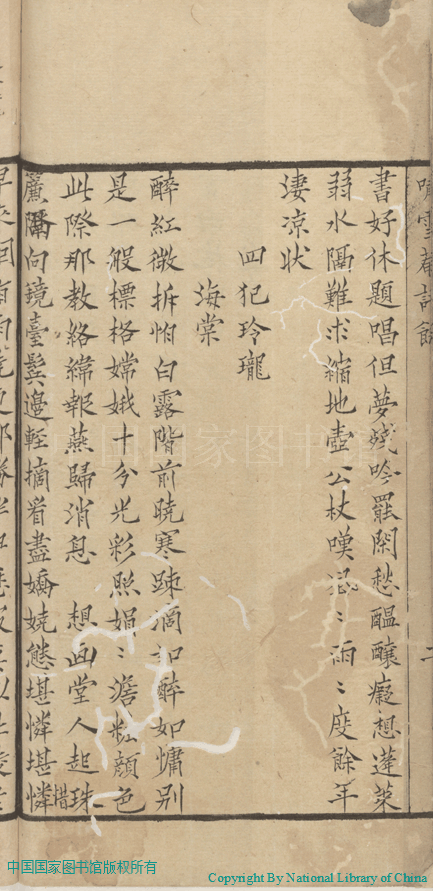 嘯雪菴詩餘
書好休題唱但夢殘吟罷閑愁醞釀癡想蓬萊
弱水隔難求縮地壺公杖嘆忽〻雨〻度餘年
淒涼狀
四犯玲瓏
海棠
醉紅微拆怕白露階前曉寒踈滴如醉如慵別
是一般標格嫦娥十分光彩照娟〻澹粧顏色
此際那教絡緯報燕歸消息 想画堂人起珠
簾隔向鏡臺鬓邊輕摘看盡嬌嬈態堪憐堪憐惜
中国国家图书馆
中国国家图书馆版权所有
Copyright By National Library of China